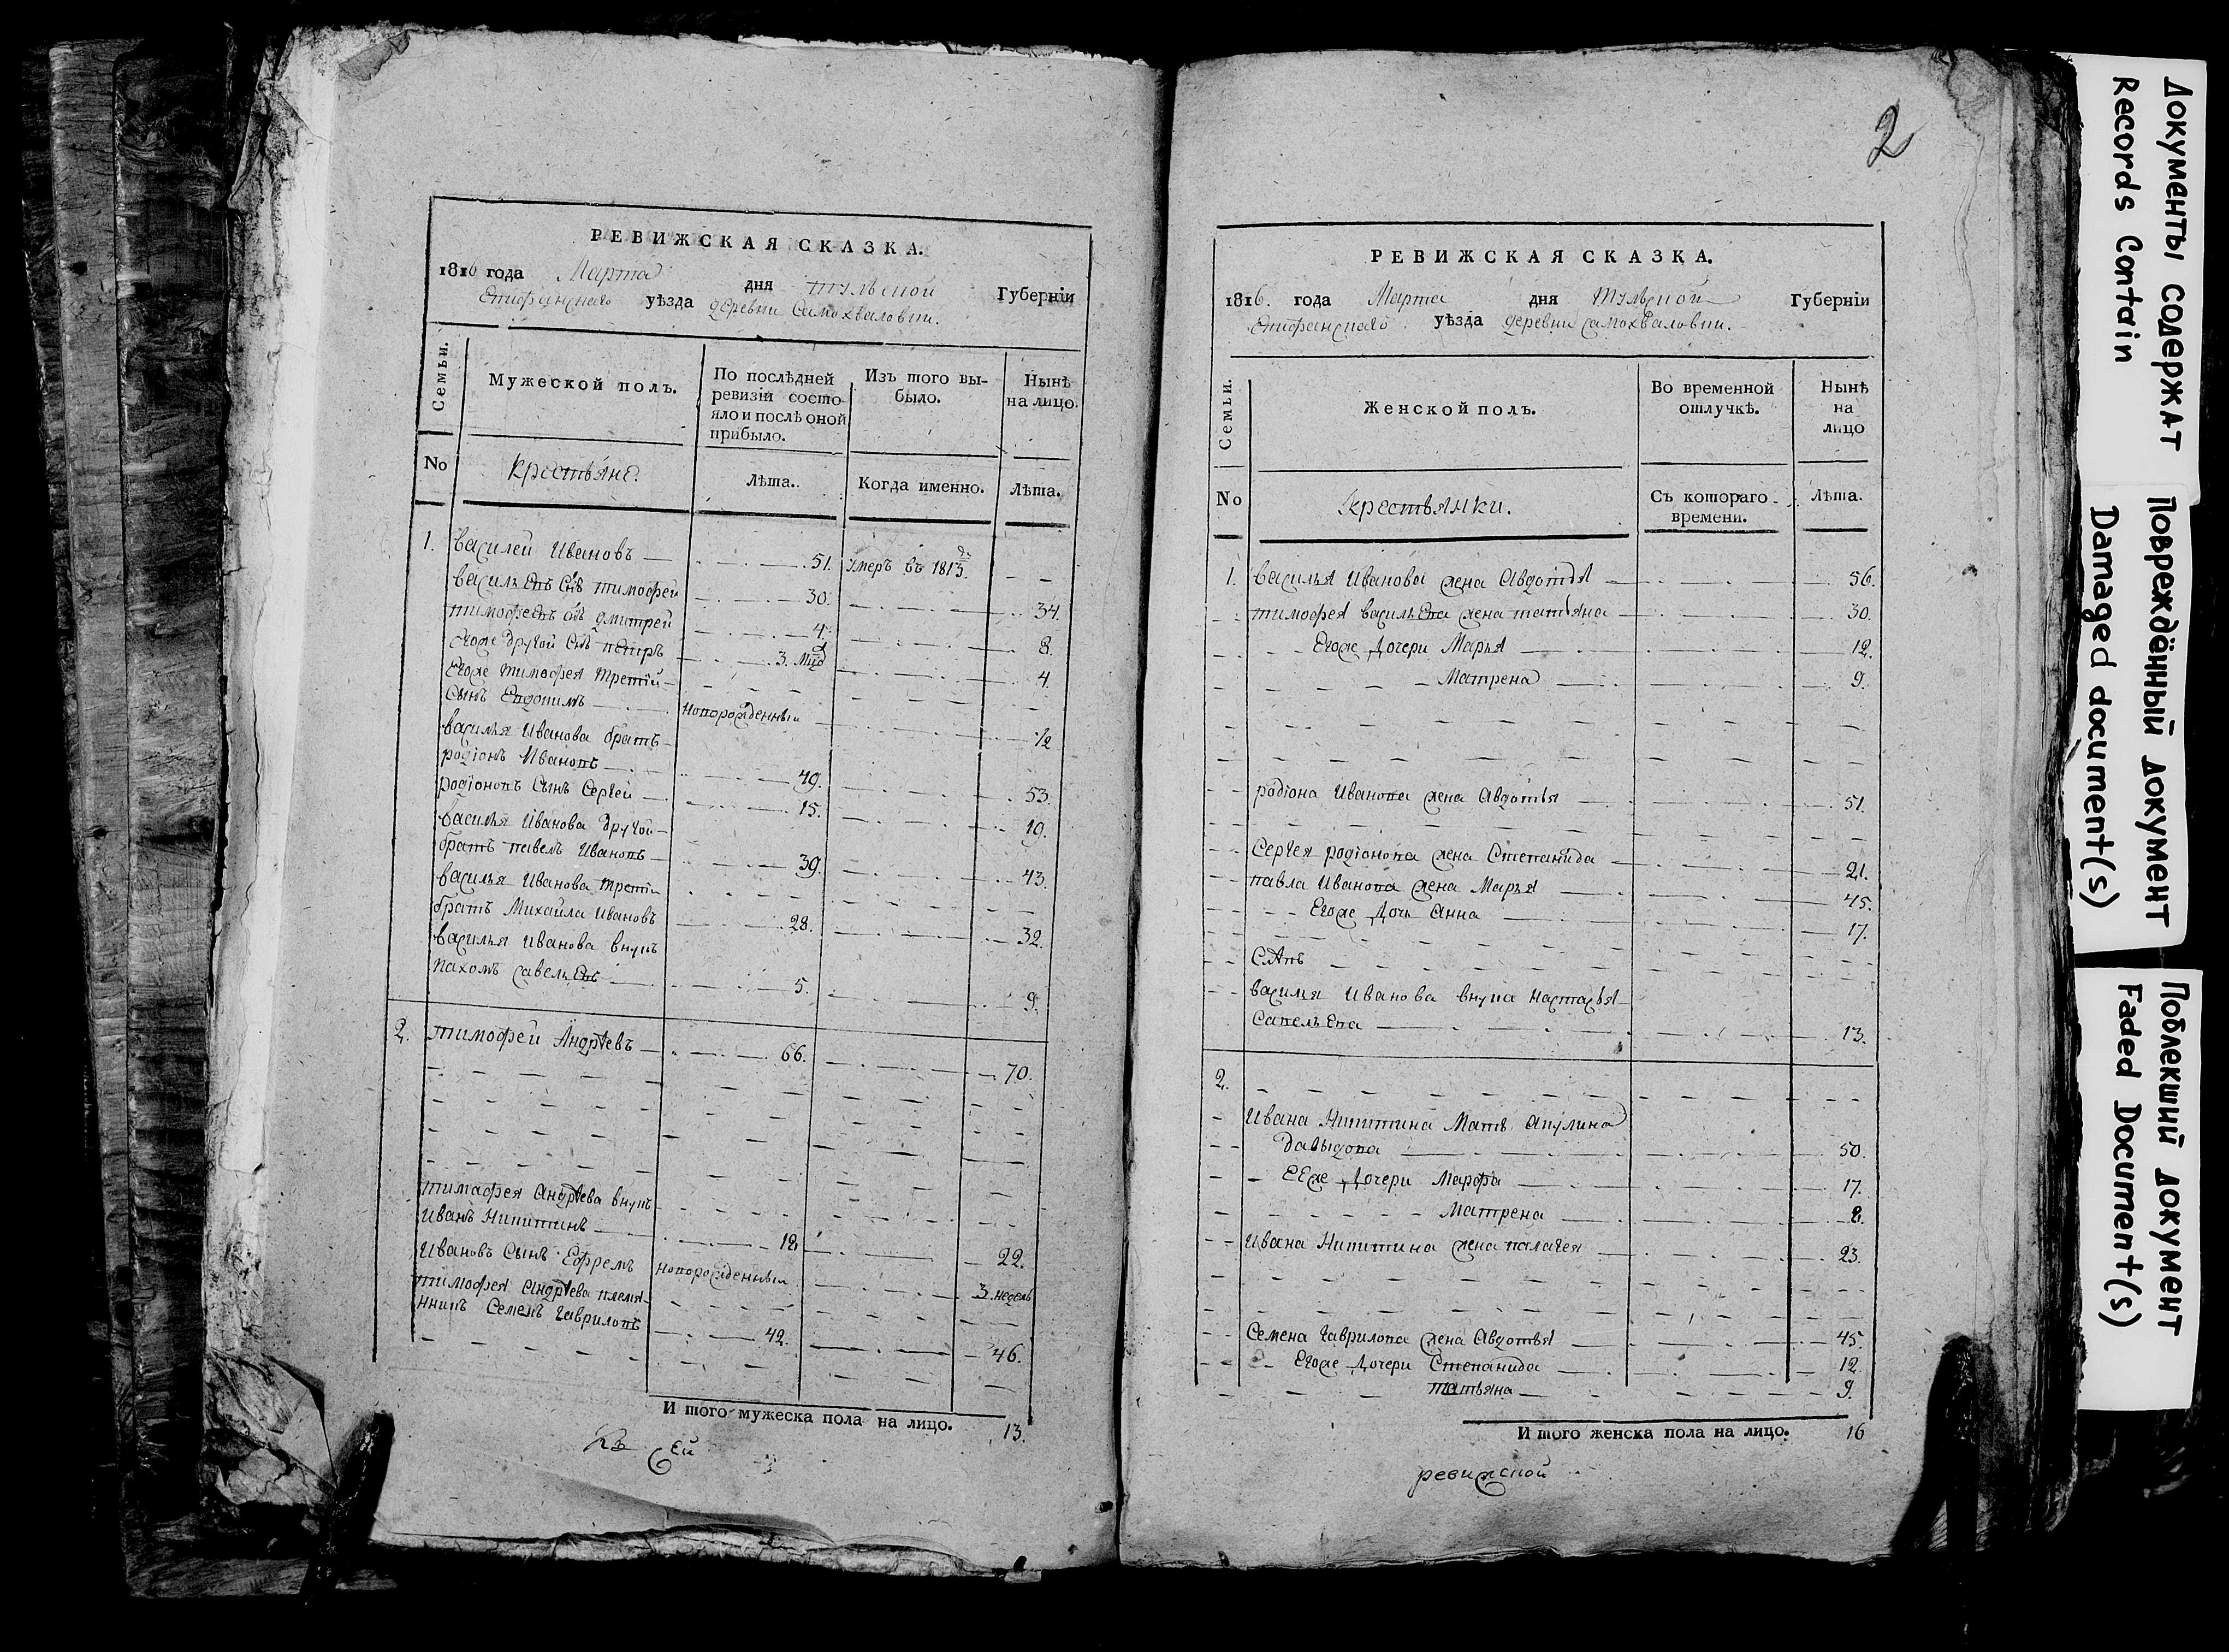 РЕВИЖСКАЯ СКАЗКА.
1816 года Марта дня Тульской Губерніи
Епифанскаго уѣзда деревни Самохваловки.
Семьи.
Мужеской полъ.
По послѣдней ревизіи состояло и послѣ оной прибыло.
Изъ того выбыло.
Нынѣ на лицо.
No
Крестьяне.
Лѣта.
Когда именно.
Лѣта.
1. Василей Ивановъ 51. умеръ въ 1813.
Васильевъ Сынъ Тимофей 30. 34.
Тимофеевъ Сынъ Дмитрей 4. 8.
Егоже другой Сынъ Петръ 3. 4.
Егоже Тимофея Третій
Сынъ Евдокимъ новорожденный 1/2
Василья Иванова братъ
родіонъ Ивановъ 49. 53.
родіоновъ Сынъ Сергей 15. 19.
Василья Иванова другой
братъ павелъ Ивановъ 39. 43.
Василья Иванова третій
братъ Михайла Ивановъ 28. 32.
Василья Иванова внукъ
Пахомъ савельевъ 5. 9.
2. Тимофей Андрѣевъ 66. 70.
Тимафея Андрѣева внукъ
Иванъ Никитинъ 18. 22.
Ивановъ Сынъ Ефремъ новорожденный 3. недель
Тимофея Андрѣева племя-
нникъ Семенъ Гавриловъ 42. 46.
И того мужеска пола на лицо. 13.
Къ Сей
2
РЕВИЖСКАЯ СКАЗКА.
1816. года Марта дня Тульской Губерніи
Епифанскаго уѣзда деревни самохваловки.
Семьи.
Женской полъ.
Во временной отлучкѣ.
Нынѣ на лицо
No
Крестьянки.
Съ котораго времени.
Лѣта.
1. Василья Иванова жена Авдотья 56.
Тимофея васильева жена татьяна 30.
Егоже Дочери Марья 12.
Матрена 9.
родіона Иванова жена Авдотья 51.
Сергея родіонова жена Степанида 21.
павла Иванова жена Марья 45.
Егоже Дочь Анна 17.
василья Иванова внука настасья
Савельева 13.
2.
Ивана Никитина Мать Акулина
давыдова 50.
Ееже Дочери Марфа 17.
Матрена 8.
Ивана Никитина жена палагея 23.
Семена Гаврилова жена Авдотья 45.
Егоже Дочери Степанида 12.
татьяна 9.
И того женска пола на лицо. 16
ревижской
Документы содержат
Records Contain
Повреждённый документ
Damaged document(s)
Поблекший документ
Faded Document(s)